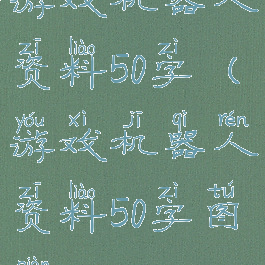 游戏机器人
zī liào zì
资料50字(
yóu xì jī qì rén
游戏机器人
zī liào zì tú
资料50字图
piàn